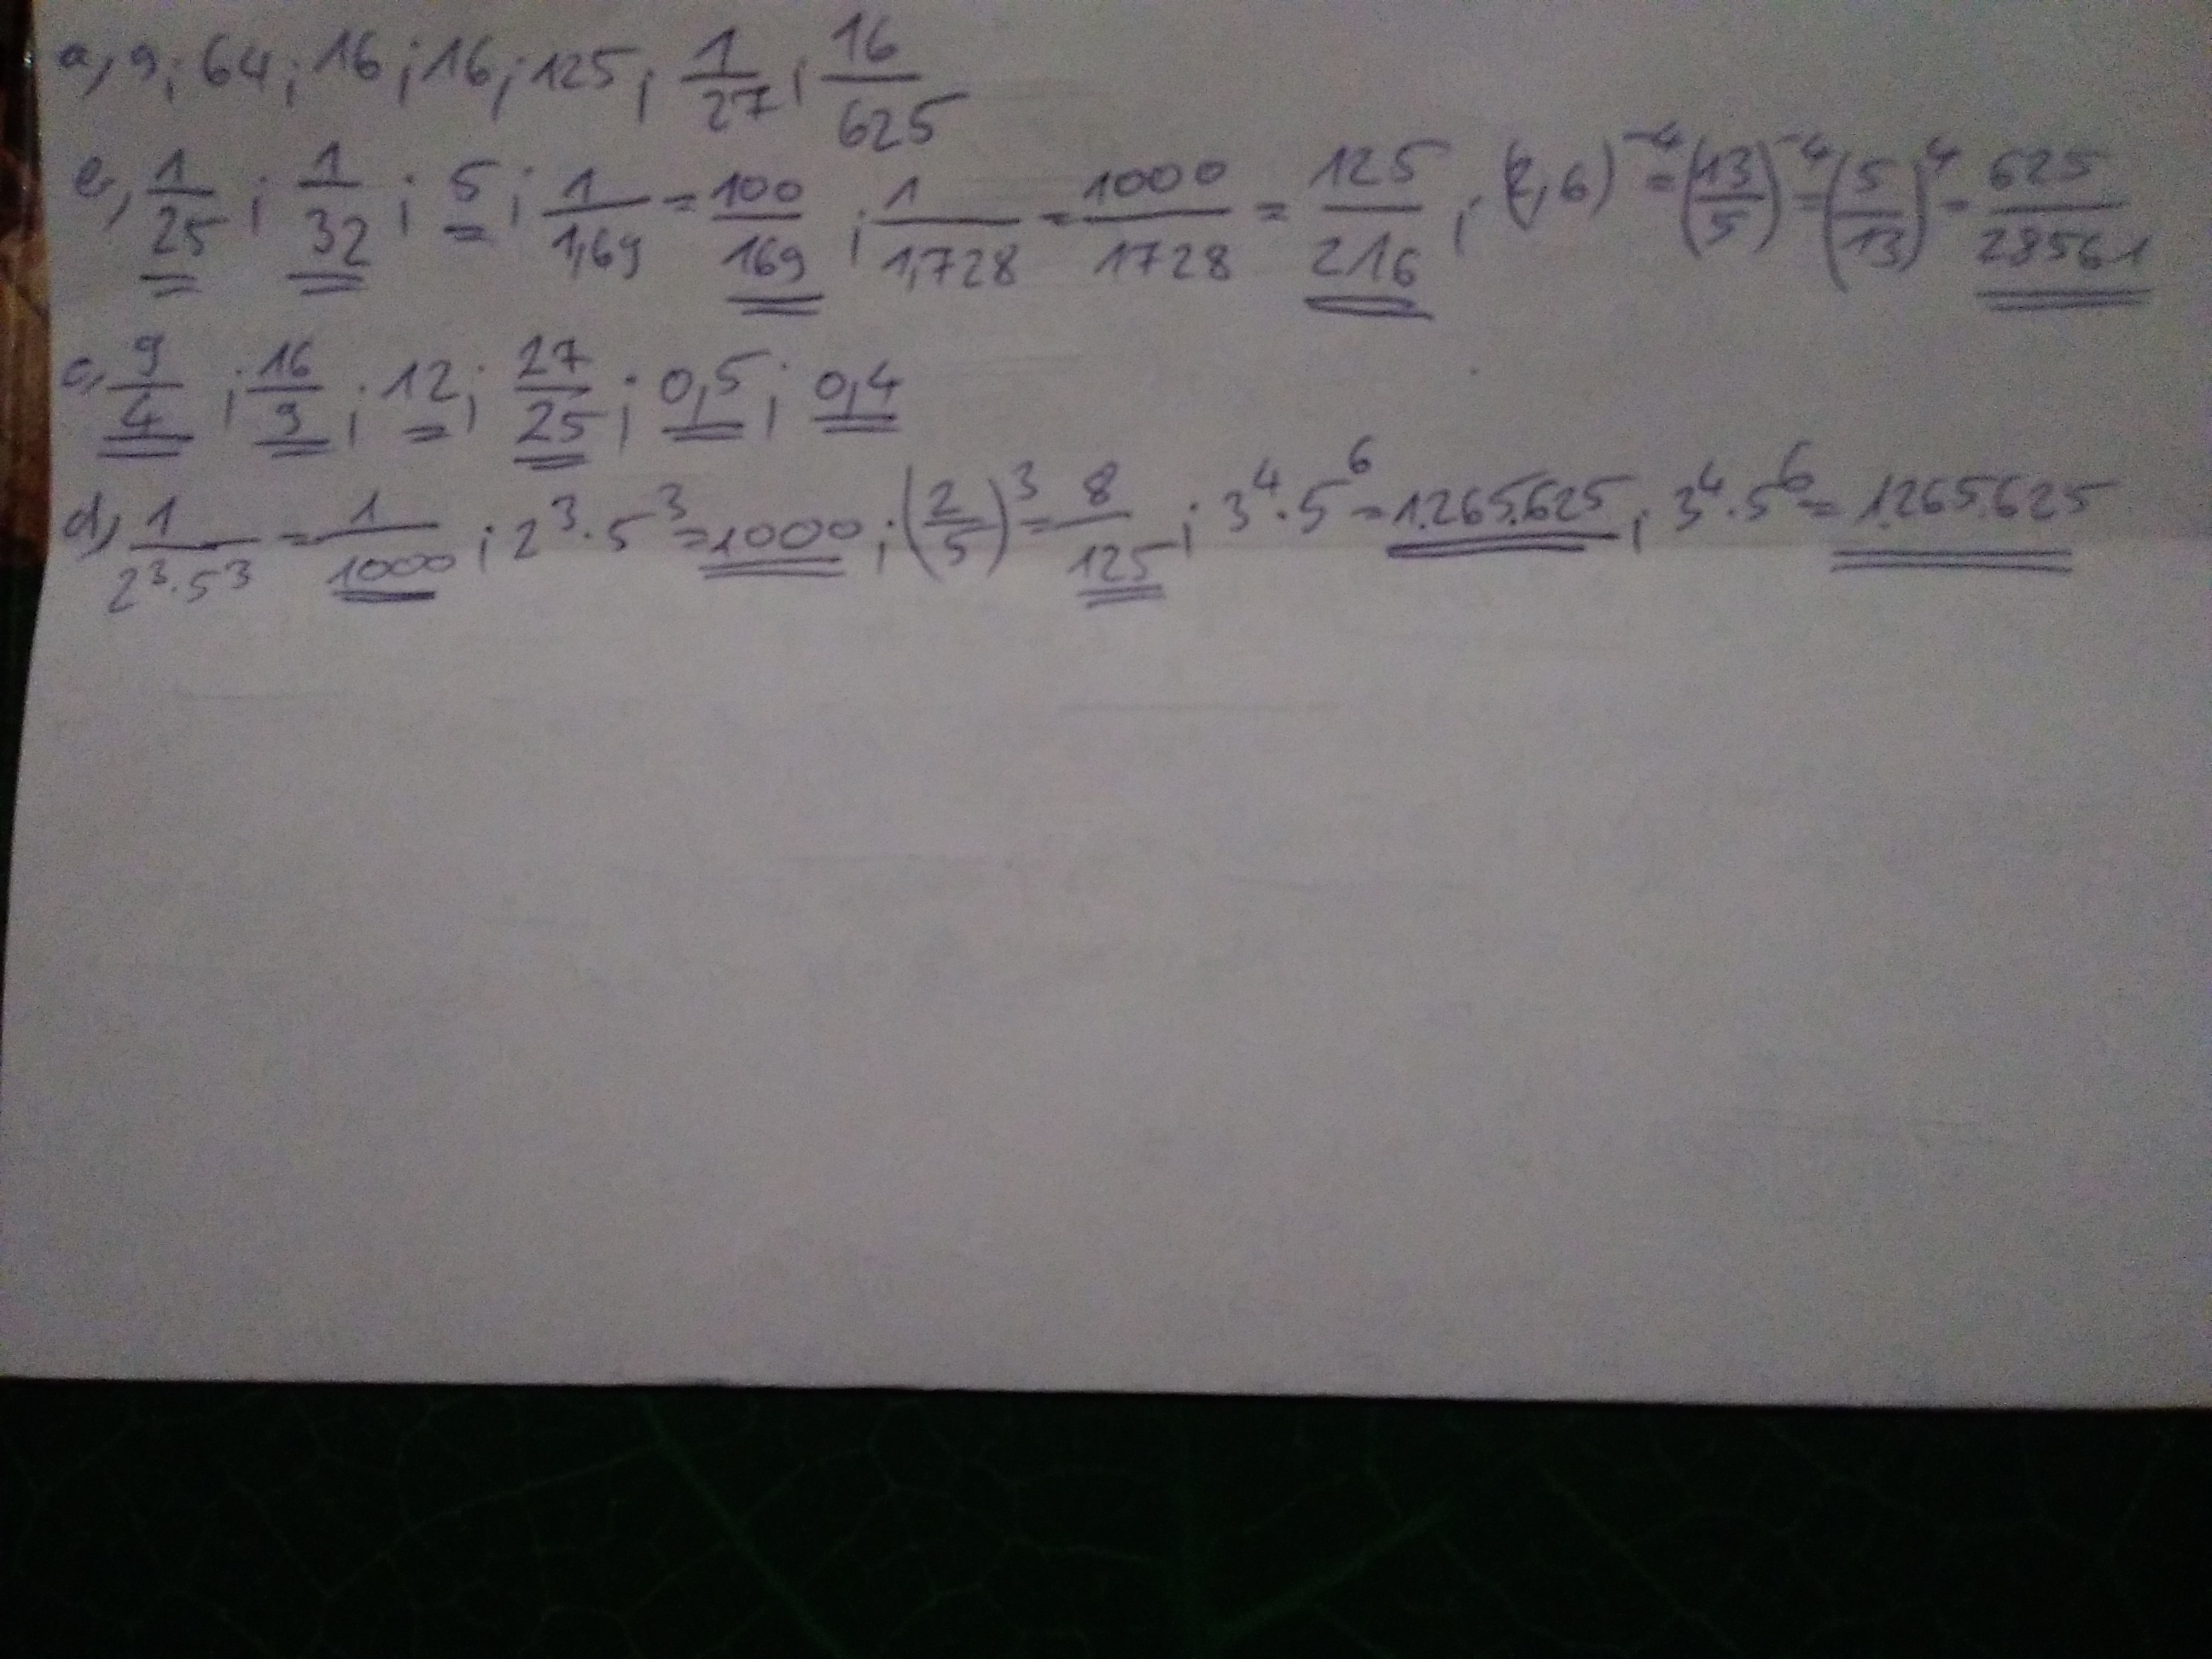 a, 9; 64; 16; 16; 125; 1/27; 16/625
b, 1/25; 1/32; 5; 1/1,69 = 100/169; 1/1,728 = 1000/1728 = 125/216; (2,6)^-4 = (13/5)^-4 = (5/13)^4 = 625/28561
c, 9/4; 16/9; 12; 27/25; 0,5; 0,4
d, 1/2^3·5^3 = 1/1000; 2^3·5^3 = 1000; (2/5)^3 = 8/125; 3^4·5^6 = 1.265.625; 3^4·5^6 = 1.265.625